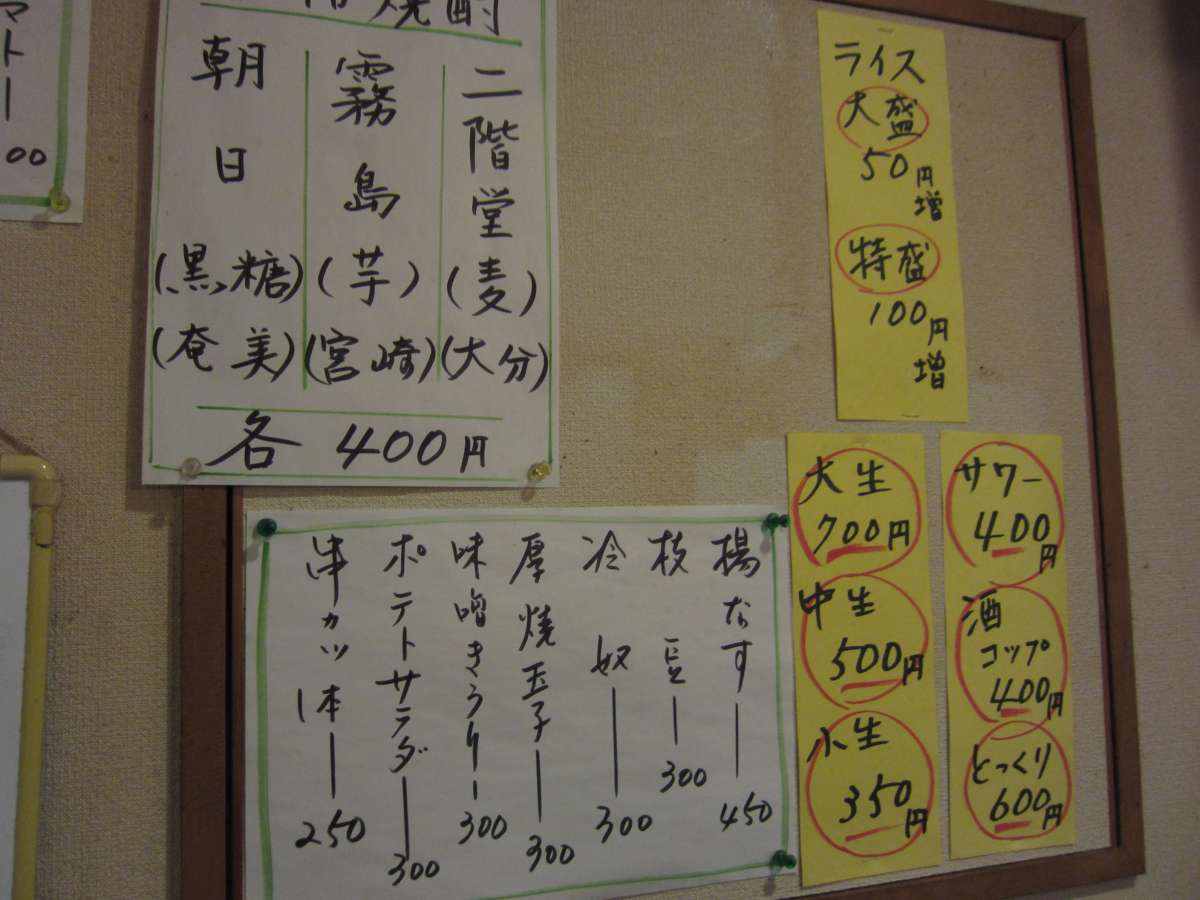 マトー
00
焼酎
二階堂(麦)(大分)
霧島(芋)(宮崎)
朝日(黒糖)(奄美)
各400円
ライス
大盛
50円増
特盛
100円増
揚なす―450
枝豆―300
冷奴―300
厚焼玉子―300
味噌きうり―300
ポテトサラダ―300
串カツ1本―250
大生
700円
中生
500円
小生
350円
サワー
400円
酒
コップ
400円
とっくり
600円